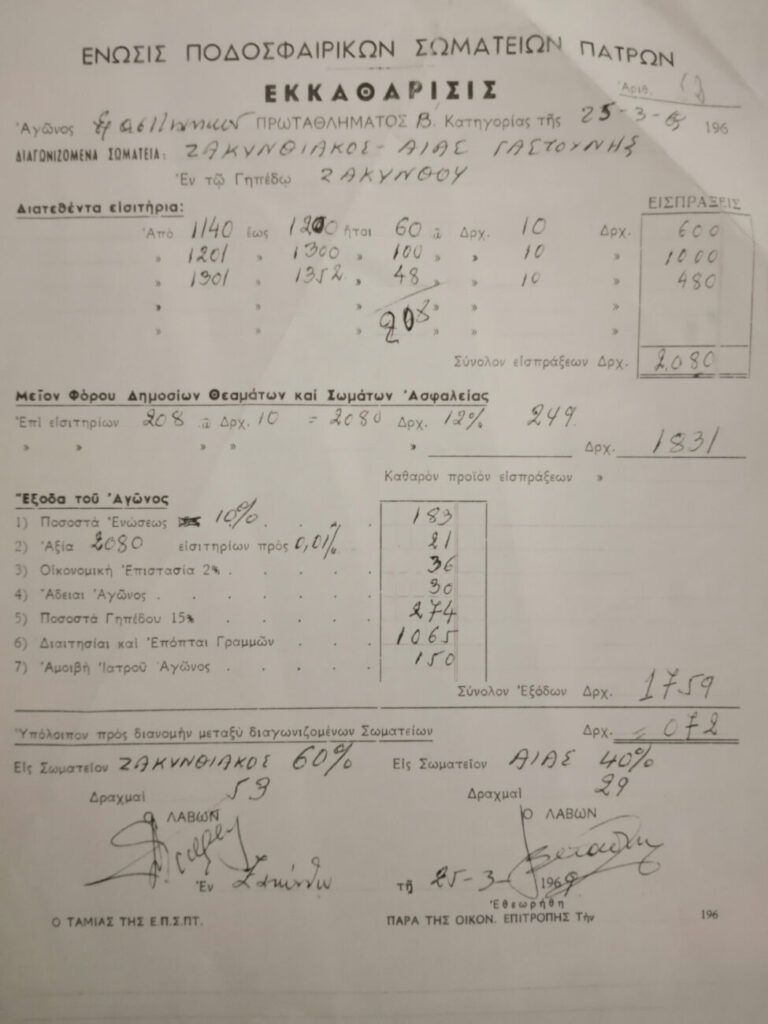 ΕΝΩΣΙΣ ΠΟΔΟΣΦΑΙΡΙΚΩΝ ΣΩΜΑΤΕΙΩΝ ΠΑΤΡΩΝ
ΕΚΚΑΘΑΡΙΣΙΣ
Ἀριθ.
Ἀγῶνος ΠΡΩΤΑΘΛΗΜΑΤΟΣ Β. Κατηγορίας τῆς 25-3- 196
ΔΙΑΓΩΝΙΖΟΜΕΝΑ ΣΩΜΑΤΕΙΑ: ΖΑΚΥΝΘΙΑΚΟΣ - ΑΙΑΣ ΓΑΣΤΟΥΝΗΣ
Ἐν τῷ Γηπέδῳ ΖΑΚΥΝΘΟΥ
Διατεθέντα εἰσιτήρια: ΕΙΣΠΡΑΞΕΙΣ
Ἀπό 1140 ἕως 1200 ἤτοι 60 ἃ Δρχ. 10 Δρχ. 600
» 1201 » 1300 » 100 » » 10 » 1000
» 1301 » 1352 » 48 » » 10 » 480
» » » » » »
» » » 208 » » »
Σύνολον εἰσπράξεων Δρχ. 2.080
Μεῖον Φόρου Δημοσίων Θεαμάτων καί Σωμάτων Ἀσφαλείας
Ἐπί εἰσιτηρίων 208 ἃ Δρχ. 10 = 2080 Δρχ. 12% 249
» » » » » Δρχ. 1831
Καθαρόν προϊόν εἰσπράξεων »
Ἔξοδα τοῦ Ἀγῶνος
1) Ποσοστά Ἑνώσεως 10% . . . 183
2) Ἀξία 2080 εἰσιτηρίων πρός 0,01% . 21
3) Οἰκονομική Ἐπιστασία 2% . . . . . 36
4) Ἄδειαι Ἀγῶνος . . . . . . 30
5) Ποσοστά Γηπέδου 15% . . . . . 274
6) Διαιτησίαι καί Ἐπόπται Γραμμῶν . . . 1065
7) Ἀμοιβή Ἰατροῦ Ἀγῶνος . . . . . 150
Σύνολον Ἐξόδων Δρχ. 1759
Ὑπόλοιπον πρός διανομήν μεταξύ διαγωνιζομένων Σωματείων Δρχ. = 072
Εἰς Σωματεῖον ΖΑΚΥΝΘΙΑΚΟΣ 60% Εἰς Σωματεῖον ΑΙΑΣ 40%
Δραχμαί 53 Δραχμαί 29
Ο ΛΑΒΩΝ Ο ΛΑΒΩΝ
Ἐν Ζακύνθῳ τῇ 25-3- 1969
Ἐθεωρήθη
Ο ΤΑΜΙΑΣ ΤΗΣ Ε.Π.Σ.ΠΤ. ΠΑΡΑ ΤΗΣ ΟΙΚΟΝ. ΕΠΙΤΡΟΠΗΣ Τὴν 196